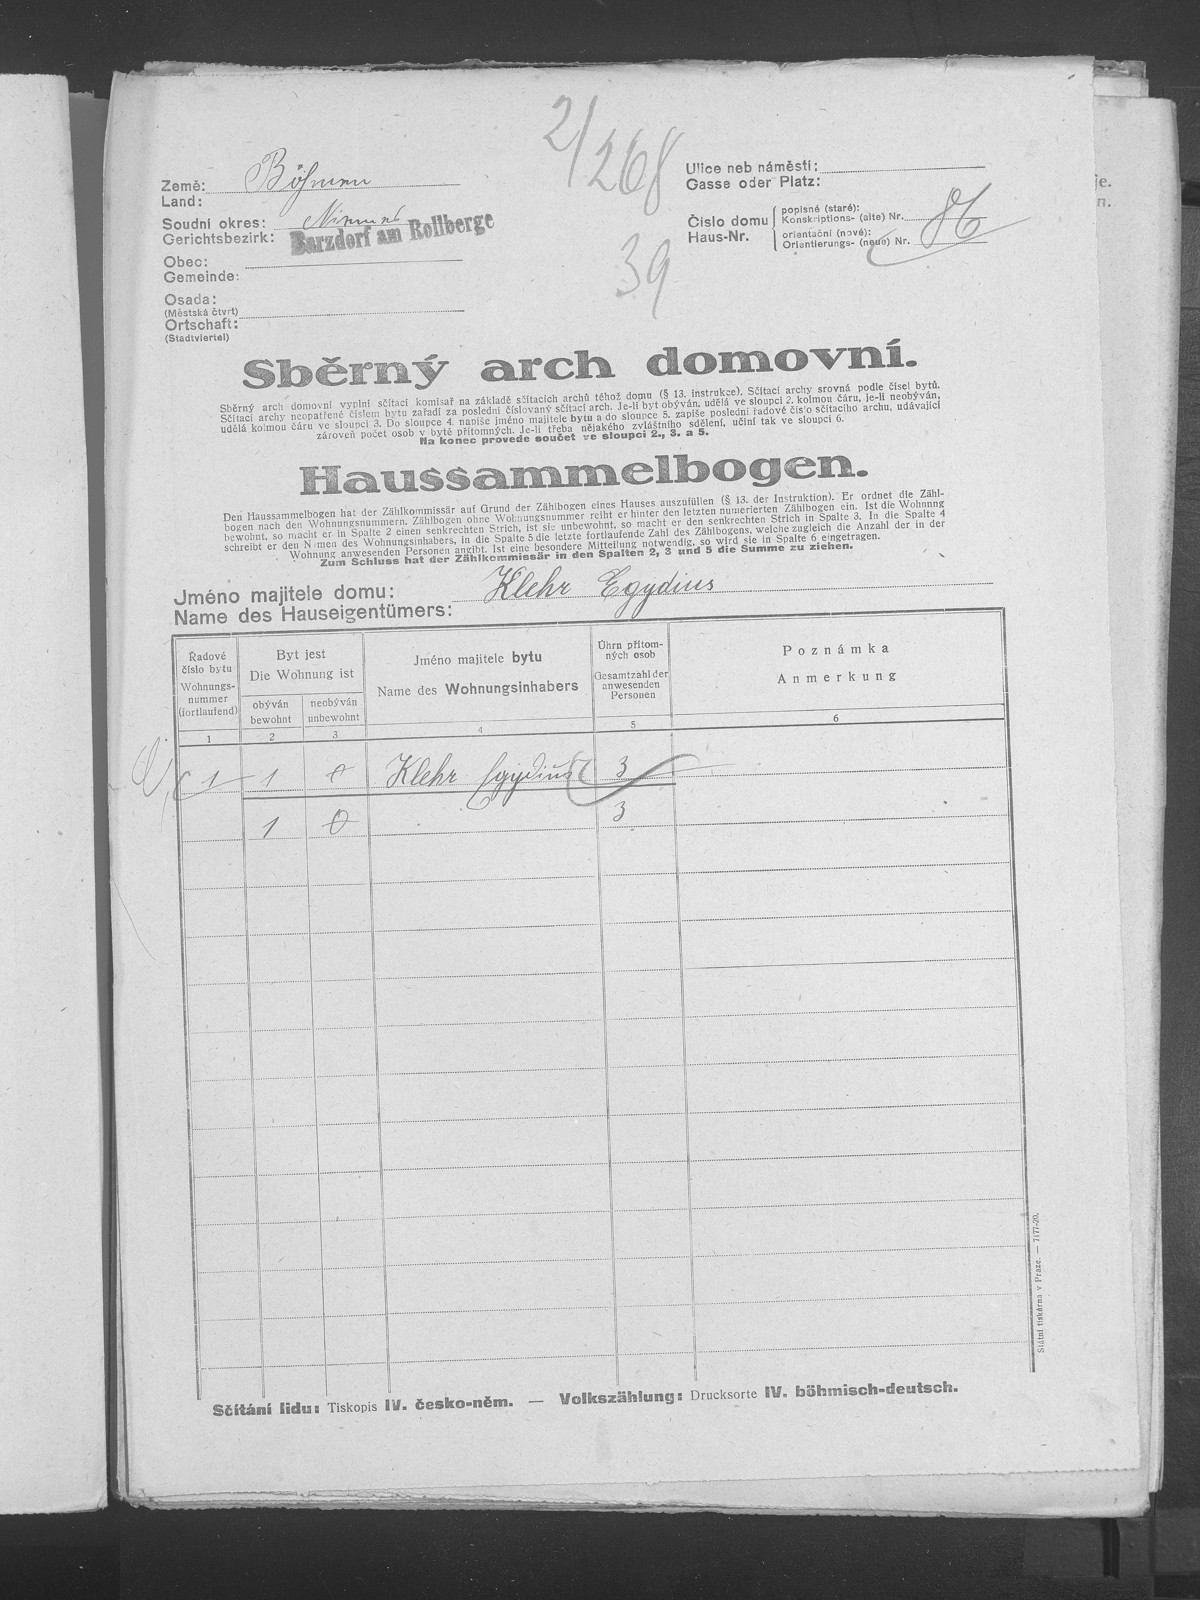 2/268
39
Země: Böhmen
Land:
Soudní okres: Niemes
Gerichtsbezirk: Barzdorf am Rollberge
Obec:
Gemeinde:
Osada:
(Městská čtvrť)
Ortschaft:
(Stadtviertel)
Ulice neb náměstí:
Gasse oder Platz:
Číslo domu popisné (staré):
Konskriptions- (alte) Nr.
Haus-Nr. orientační (nové):
Orientierungs- (neue) Nr.
86
Sběrný arch domovní.
Sběrný arch domovní vyplní sčítací komisař na základě sčítacích archů téhož domu (§ 13. instrukce). Sčítací archy srovná podle čísel bytů.
Sčítací archy neopatřené číslem bytu zařadí za poslední číslovaný sčítací arch. Je-li byt obýván, udělá ve sloupci 2. kolmou čáru, je-li neobýván,
udělá kolmou čáru ve sloupci 3. Do sloupce 4. napíše jméno majitele bytu a do sloupce 5. zapíše poslední řadové číslo sčítacího archu, udávající
zároveň počet osob v bytě přítomných. Je-li třeba nějakého zvláštního sdělení, učiní tak ve sloupci 6.
Na konec provede součet ve sloupci 2., 3. a 5.
Haussammelbogen.
Den Haussammelbogen hat der Zählkommissär auf Grund der Zählbogen eines Hauses auszufüllen (§ 13. der Instruktion). Er ordnet die Zähl-
bogen nach den Wohnungsnummern. Zählbogen ohne Wohnungsnummer reiht er hinter den letzten numerierten Zählbogen ein. Ist die Wohnung
bewohnt, so macht er in Spalte 2 einen senkrechten Strich, ist sie unbewohnt, so macht er den senkrechten Strich in Spalte 3. In die Spalte 4
schreibt er den Namen des Wohnungsinhabers, in die Spalte 5 die letzte fortlaufende Zahl des Zählbogens, welche zugleich die Anzahl der in der
Wohnung anwesenden Personen angibt. Ist eine besondere Mitteilung notwendig, so wird sie in Spalte 6 eingetragen.
Zum Schluss hat der Zählkommissär in den Spalten 2, 3 und 5 die Summe zu ziehen.
Jméno majitele domu: Klehr Egydius
Name des Hauseigentümers:
Řadové číslo bytu
Wohnungs-nummer (fortlaufend)
Byt jest
Die Wohnung ist
obýván
bewohnt
neobýván
unbewohnt
Jméno majitele bytu
Name des Wohnungsinhabers
Úhrn přítom-ných osob
Gesamtzahl der anwesenden Personen
Poznámka
Anmerkung
1 2 3 4 5 6
1 1 0 Klehr Egydius 3
1 0 3
Sčítání lidu: Tiskopis IV. česko-něm. — Volkszählung: Drucksorte IV. böhmisch-deutsch.
Státní tiskárna v Praze. — 7177-20.
je.
n.